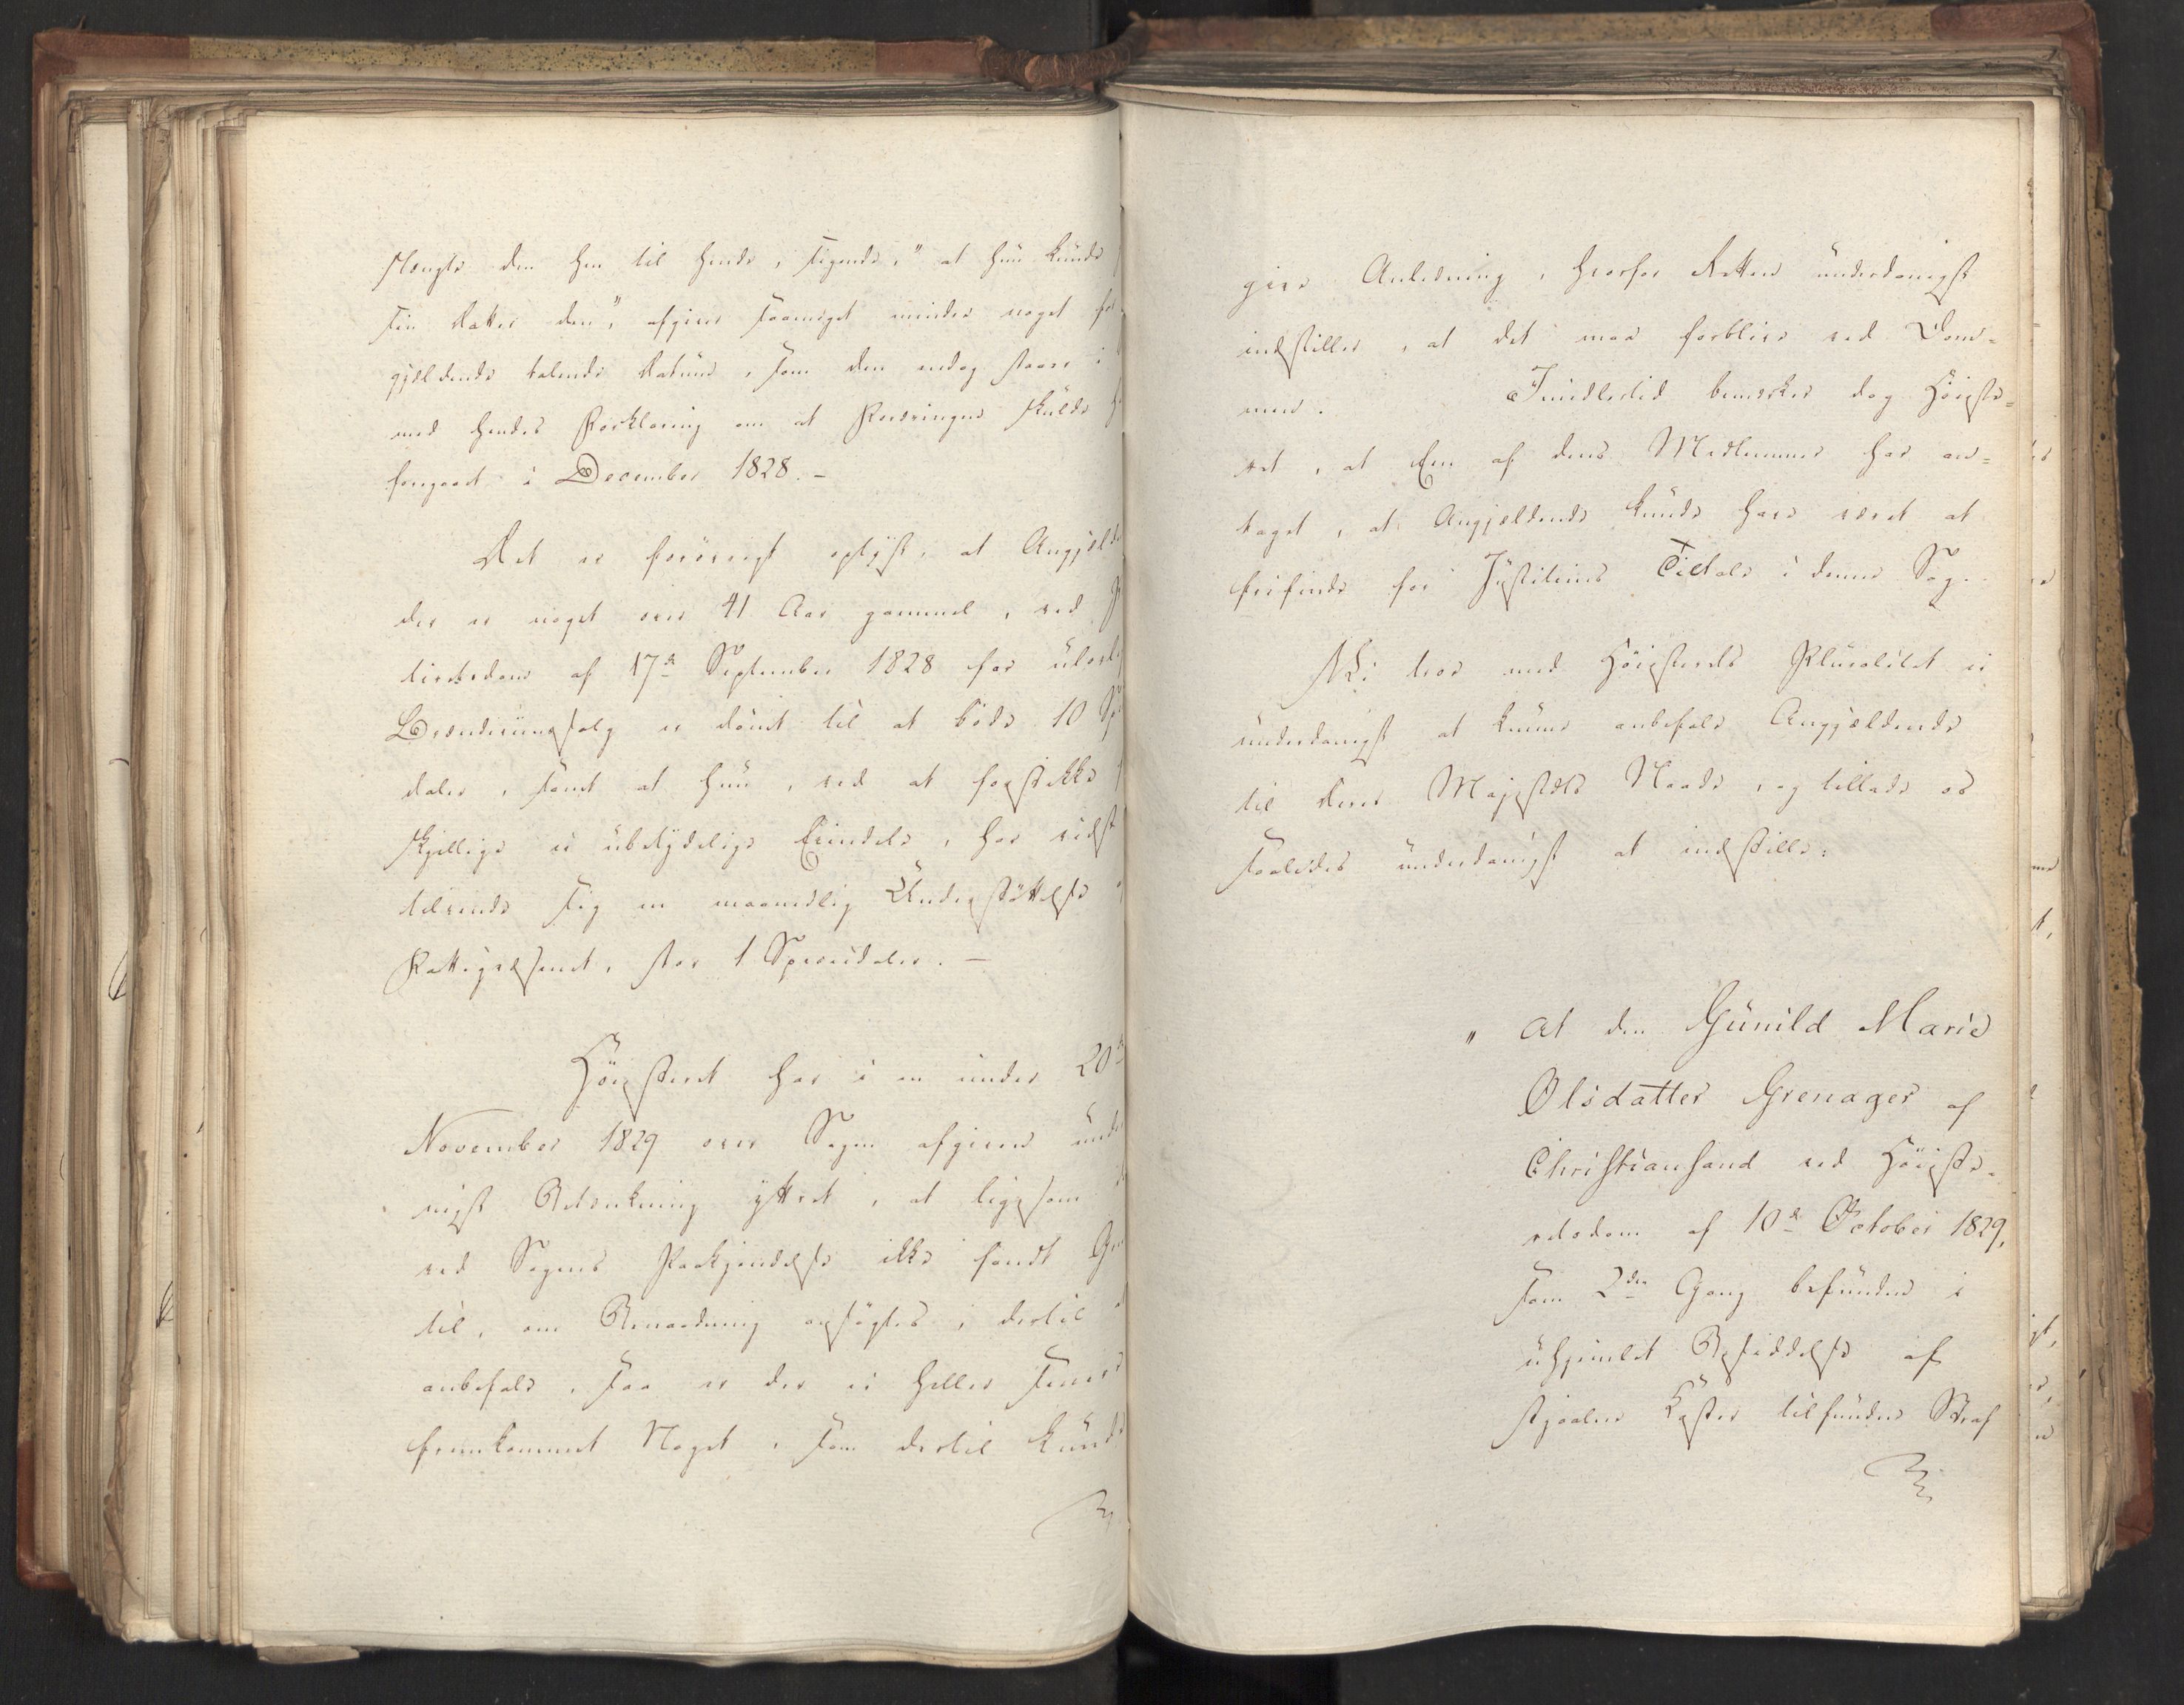 slængte den hen til hende, sigende, "at hun kunde
sin Datter den", afgiver saameget mindre noget for
gjældende talende Datum, som den endog staaer i
med hendes Forklaring om at Foræringen skulde
foregaaet i December 1828. –
Det er forövrigt oplyst, at Angjæld
der er noget over 41 Aar gammel, ved
tiretsdom af 17de September 1828 for ulovlig
Brændeviinssalg er dömt til at böde 10 Sp
daler, samt at hun, ved at foestikke
skjellige ei ubetydelige Eiendele, har vidst
tilvende sig en maanedlig Understöttelse
Fattigvæsenet, stor 1 Speciedaler. –
Höiesteret har i en under 20de
November 1829 over Sagen afgiven unde
nigst Betænkning yttret, at ligesom
ved Sagens Paakjendelse ikke fandt
til, om Benaadning ansögtes, dertil
anbefale, saa er der ei heller senere
fremkommet Noget, som dertil kunde
give Anledning, hvorfor Retten underdanigst
indstiller, at det maa forblive ved Dom-
men. Imidlertid bemærker dog Höieste-
ret, at Een af dens Medlemmer har an-
taget, at Angjældende kunde have været at
frifinde for Justitiens Tiltale i denne Sag.
Vi troe med Höiesterets Pluralitet ei
underdanigst at kunne anbefale Angjældende
til Deres Majestæts Naade, og tillade os
saaledes underdanigst at indstille:
" at den Gunild Marie
Olsdatter Grenager af
Christiansand ved Höieste-
retsdom af 10de October 1829,
som 2den Gang befunden i
uhjemlet Besiddelse af
stjaalne Koster tilfundne Straf